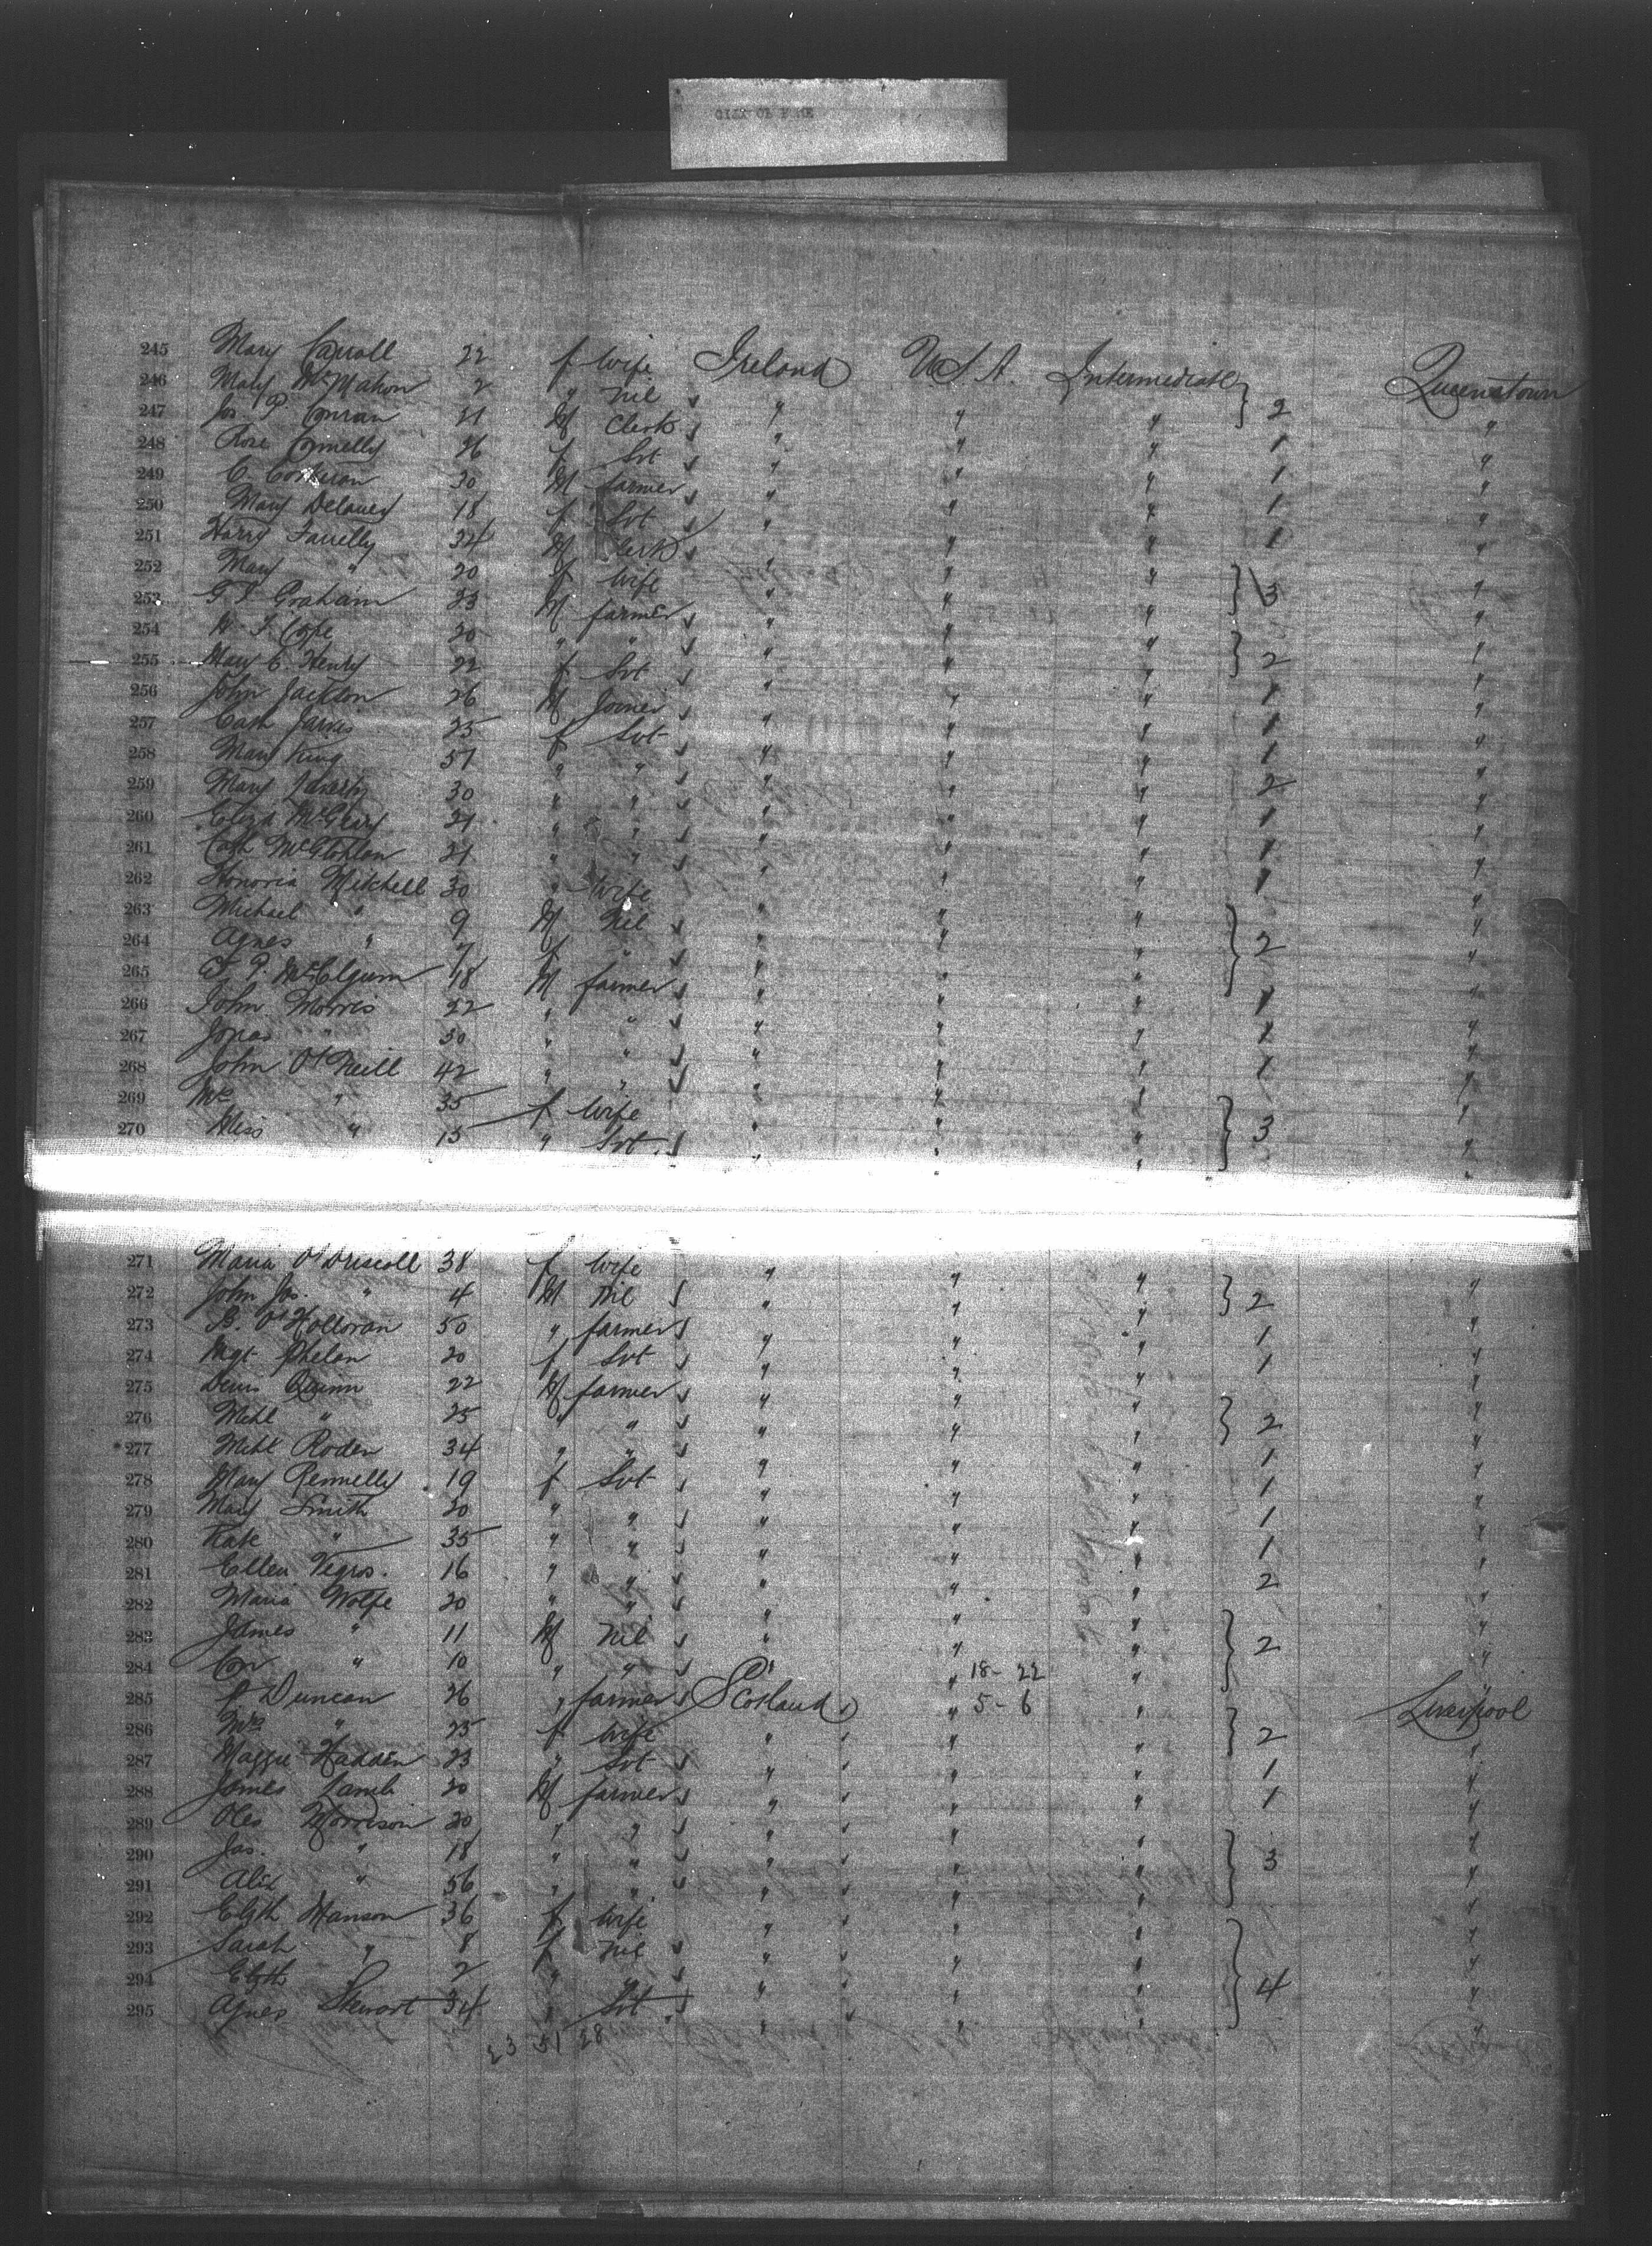 CITY OF ROME
245 Mary Carroll 22 f wife Ireland U.S.A. Intermediate Queenstown
246 Mary McMahon 2 " nil " " " } 2 "
247 Jos. P. Conran 21 M Clerk " " " 1 "
248 Rose Connelly 26 f Svt " " " 1 "
249 C. Corkeran 30 M farmer " " " 1 "
250 Mary Delaney 18 f Svt " " " 1 "
251 Harry Farrelly 34 M Clerk " " " "
252 Mary " 20 f wife " " " } 3 "
253 T. F. Graham 23 M farmer " " " "
254 20 " " " " " } 2 "
255 Mary C. Henry 22 f Svt " " " 1 "
256 John Jackson 26 M Joiner " " " 1 "
257 Cath James 25 f Svt " " " 1 "
258 Mary King 51 " " " " " 2 "
259 Mary 30 " " " " " 1 "
260 Eliza 21 " " " " " 1 "
261 Cath 21 " " " " " 1 "
262 Honoria Mitchell 30 " wife " " " "
263 Michael " 9 M Nil " " " } 2 "
264 Agnes " 7 f " " " " "
265 18 M farmer " " " 1 "
266 John Morris 22 " " " " " 1 "
267 Jonas " 30 " " " " " 1 "
268 John O'Neill 42 " " " " " "
269 Mrs " 35 f wife " " " } 3 "
270 Miss " 15 " Svt " " " "
271 Maria O'Driscoll 38 f wife " " " "
272 John Jos. " 4 M Nil " " " } 2 "
273 B. O'Holloran 50 " farmer " " " 1 "
274 Mgt Phelan 20 f Svt " " " 1 "
275 Denis Quinn 22 M farmer " " " "
276 Michl " 25 " " " " " } 2 "
277 Michl Roden 34 " " " " " 1 "
278 Mary Rennelly 19 f Svt " " " 1 "
279 Mary Smith 20 " " " " " 1 "
280 Kate " 35 " " " " " 1 "
281 Ellen 16 " " " " " 2 "
282 Maria Wolfe 20 " " " " " "
283 James " 11 M Nil " " " } 2 "
284 Con " 10 " " " 18-22 " "
285 Duncan 26 " farmer Scotland " 5-6 " Liverpool
286 Mrs " 25 f wife " " " } 2 "
287 Maggie Hadden 23 " Svt " " " 1 "
288 James Lamb 20 M farmer " " " 1 "
289 Morrison 20 " " " " " "
290 Jas. " 18 " " " " " } 3 "
291 Alex " 56 " " " " " "
292 Elzth Manson 36 f wife " " " "
293 Sarah " 8 f Nil " " " "
294 Elzth " 2 " " " " " } 4 "
295 Agnes Stewart 34 " Svt " " " "
23 51 28